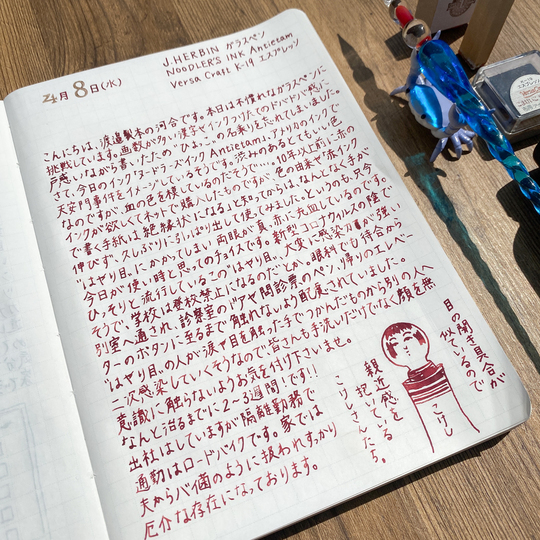 4月8日(水)
J.HERBIN ガラスペン
NOODLER'S INK Antietam
Versa Craft K-19 エスプレッソ
こんにちは、渡邉製本の河合です。本日は不慣れなガラスペンに
挑戦しています。画数が多い漢字やインクつけたてのドバドバ感に
戸惑いながら書いたのでひょ。この名乗りを忘れてしまいました。
さて、今日のインクはヌードラーズインク Antietam。アメリカのインクで
天安門事件をイメージしているそうです。渋みのあるとてもいい色
なのですが、血の色を模しているのだそうで…。10年以上前に赤の
インクが欲しくてネットで購入したものですが、色の由来や「赤インク
で書く手紙は絶縁状になる」と知ってからは、なんとなく手が
伸びず、久しぶりに引っぱり出して使ってみました。というのも、只今
"はやり目"にかかってしまい両眼が真っ赤に充血しているので
今日が使い時と思ってのチョイスです。新型コロナウィルスの陰で
ひっそりと流行している?の"はやり目"、大変に感染力が強い
そうで、学校は登校禁止になるのだとか。眼科でも待合から
別室へ通され、診察室のドアや問診票のペン、帰りのエレベー
ターのボタンに至るまで触れないよう配慮されていました。
"はやり目"の人が涙や目を触った手でつかんだものから別の人へ
二次感染していくそうなので皆さんも手洗いだけでなく顔を無
意識に触らないようお気を付け下さいませ。
なんと治るまでに2~3週間!です!!
出社はしていますが隔離勤務で
通勤はロードバイクです。家では
夫からバイ菌のように扱われすっかり
厄介な存在になっております。
目の開き具合が
似ているので
親近感を
抱いている
こけしさんたち。
こけし